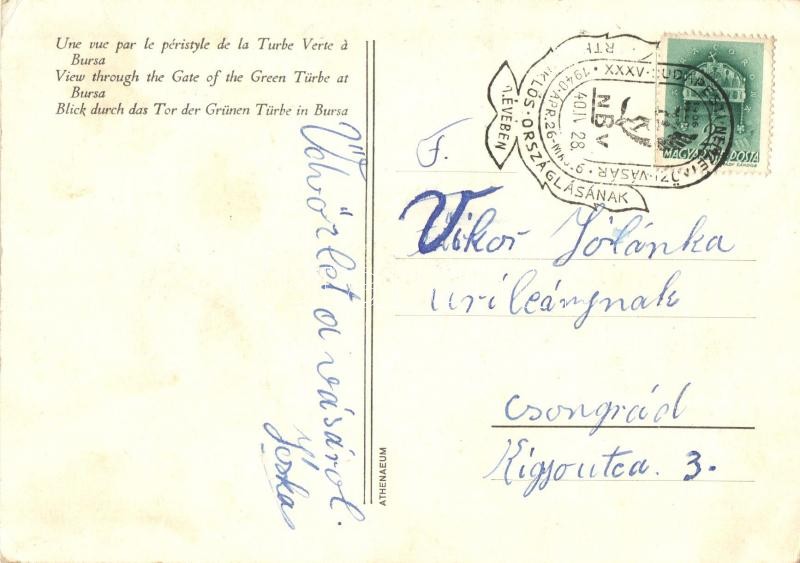 Une vue par le péristyle de la Turbe Verte à
Bursa
View through the Gate of the Green Türbe at
Bursa
Blick durch das Tor der Grünen Türbe in Bursa
Üdvözlet a vásárol.
Jóska
ATHENAEUM
F.
Vikor Jolánka
urileánynak
Csongrád
Kigyoutca. 3.
ÉVÉBEN
KLÓS · ORSZÁGLÁSÁNAK
1940·ÁPR·26-MÁJ·6·
XXXV·BUDAPESTI NEMZETKÖZI·VÁSÁR
40 IV 28
NBV
MAGYAR POSTA